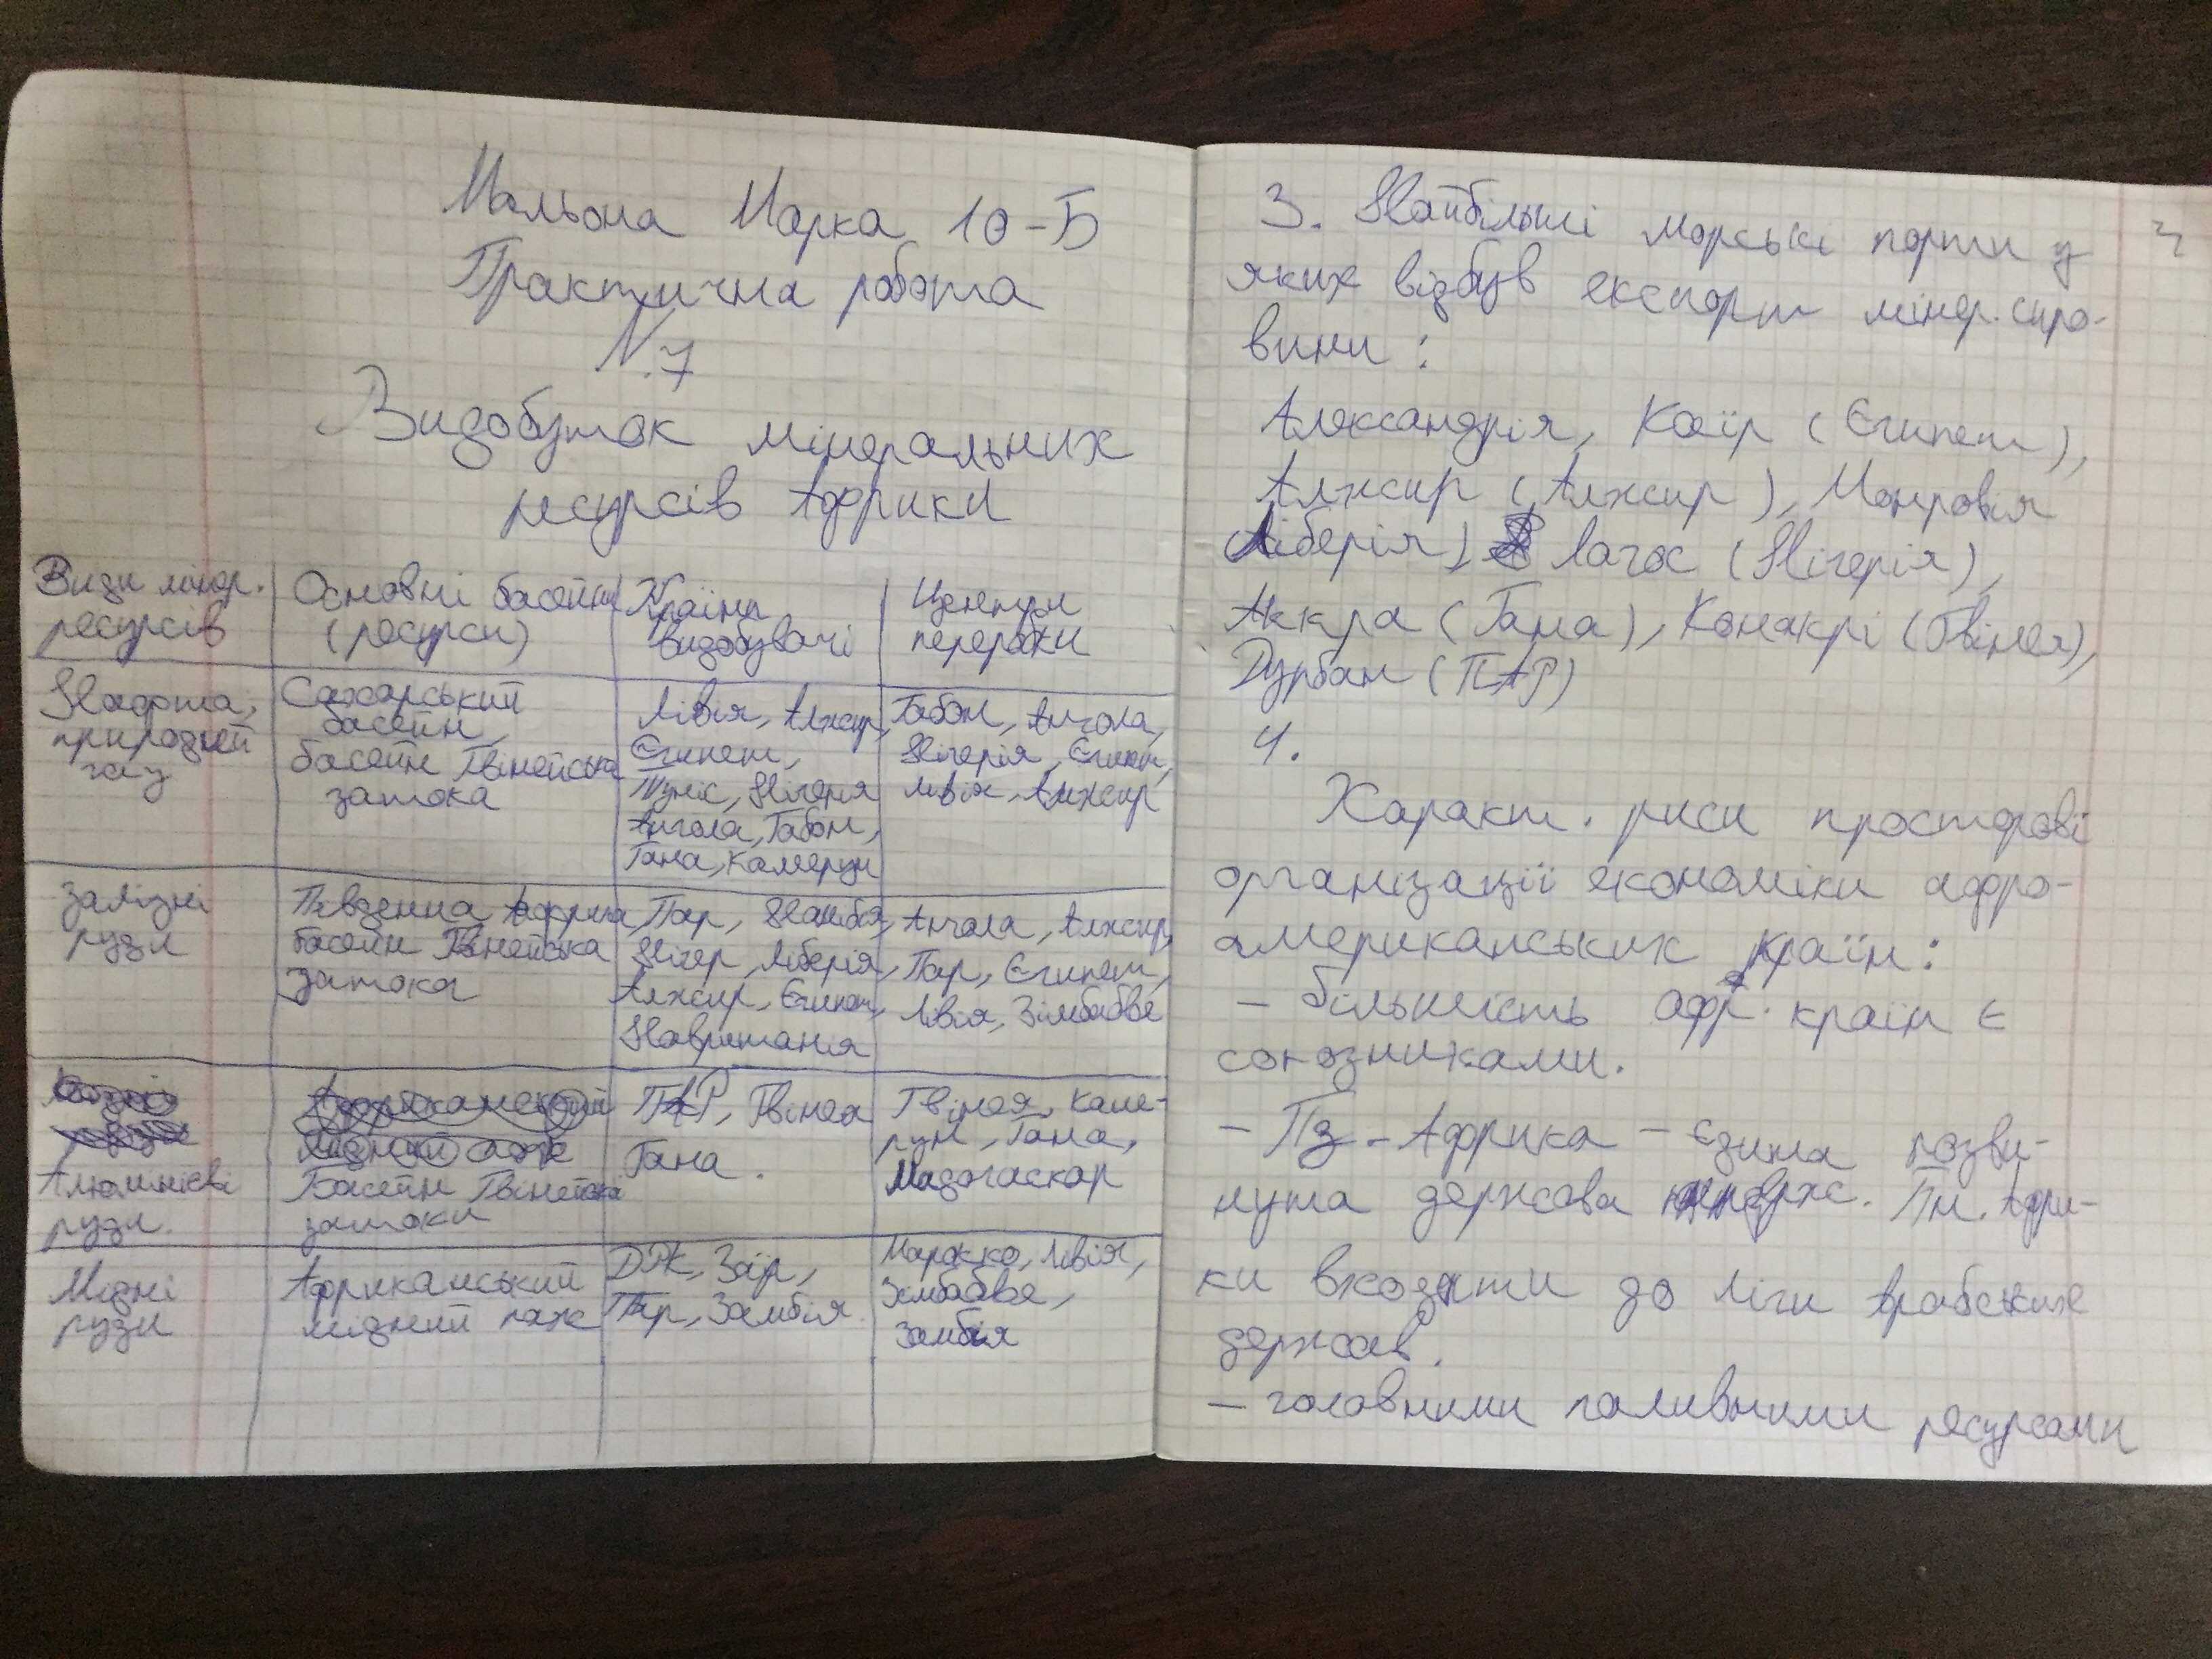 Мальона Марка 10-Б
Практична робота
N.7
Видобуток мінеральних
ресурсів Африки
Види мінер. ресурсів | Основні басейни (ресурси) | Країни видобувачі | Центри переробки
Нафта, природний газ | Сахарський басейн, басейн Гвінейська затока | Лівія, Алжир, Єгипет, Туніс, Нігерія Ангола, Габон, Гана, Камерун | Габон, Ангола, Нігерія, Єгипет, Лівія, Алжир
залізні руди | Південна Африка, басейн Гвінейська затока | Пар, Намібія, Нігер, Ліберія, Алжир, Єгипет, Мавританія | Ангола, Алжир, Пар, Єгипет, Лівія, Зімбабве
Алюмінієві руди. | Басейн Гвінейської затоки | ПАР, Гвінея Гана. | Гвінея, Камерун, Гана, Мадагаскар
Мідні руди | Африканський мідний пояс | ДРК, Заїр, Пар, Замбія. | Марокко, Лівія, Зімбабве, Замбія
3. Найбільші морські порти з
яких відбув експорт мінер. сиро-
вини:
Александрія, Каїр (Єгипет),
Алжир (Алжир), Монровія
(Ліберія), Лагос (Нігерія),
Аккра (Гана), Конакрі (Гвінея),
Дурбан (ПАР)
4.
Характ. риси просторові
організації економіки афро-
американських країн:
- більшість афр. країн є
союзниками.
- Пд-Африка - єдина розви-
нута держава Пн. Афри-
ки входяти до ліги Арабських
держав.
- головними паливними ресурсами